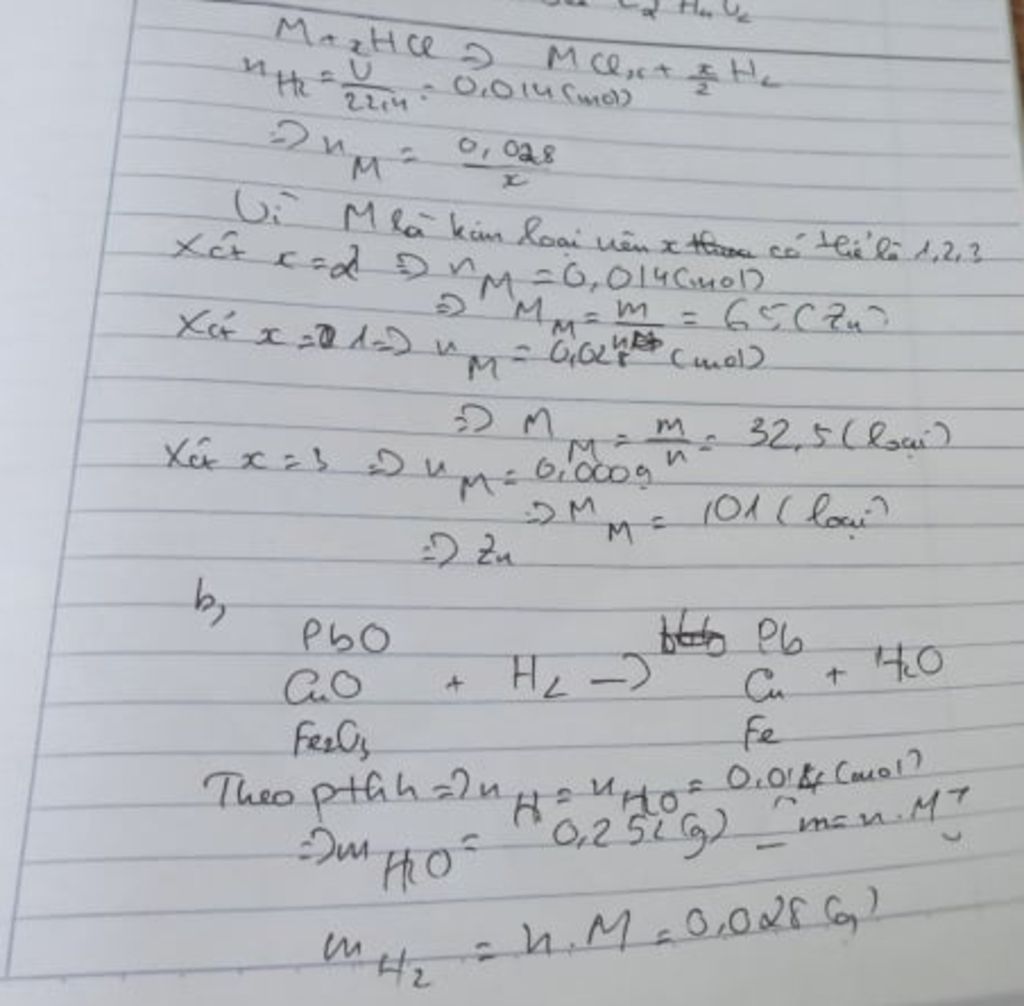 M + xHCl => MClx + x/2 H2
nH2 = V/22,4 = 0,014 (mol)
=> nM = 0,028/x
Vì M là kim loại nên x có thể là 1,2,3
Xét x = 2 => nM = 0,014 (mol)
=> MM = m/n = 65 (Zn)
Xét x = 1 => nM = 0,028 (mol)
=> MM = m/n = 32,5 (loại)
Xét x = 3 => nM = 0,0009
=> MM = 101 (loại)
=> Zn
b,
PbO Pb
CuO + H2 -> Cu + H2O
Fe2O3 Fe
Theo pthh => nH = nH2O = 0,014 (mol)
=> mH2O = 0,252 (g) [m = n.M]
mH2 = n.M = 0,028 (g)